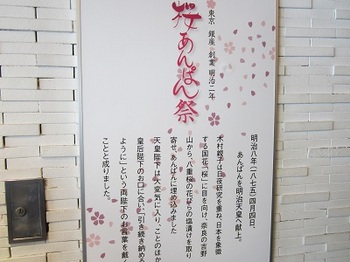 東京 銀座 創業 明治二年
桜あんぱん祭
明治八年(一八七五)四月四日、
あんぱんを明治天皇へ献上。
木村親子は日夜研究を重ね、日本を象徴
する国花、「桜」に目を向け、奈良の吉野
山から、八重桜の花びらの塩漬けを取り
寄せ、あんぱんに埋め込みました
天皇陛下は大変気に入り、ことのほか
皇后陛下のお口に合い、「引き続き納める
ように」という両陛下のお言葉を戴く
ことと成りました。